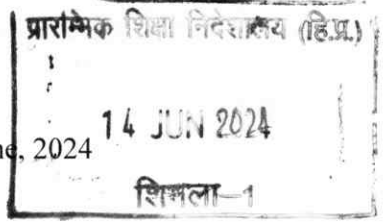 प्रारम्भिक शिक्षा निदेशालय (हि.प्र.)
14 JUN 2024
ne, 2024
शिमला-1